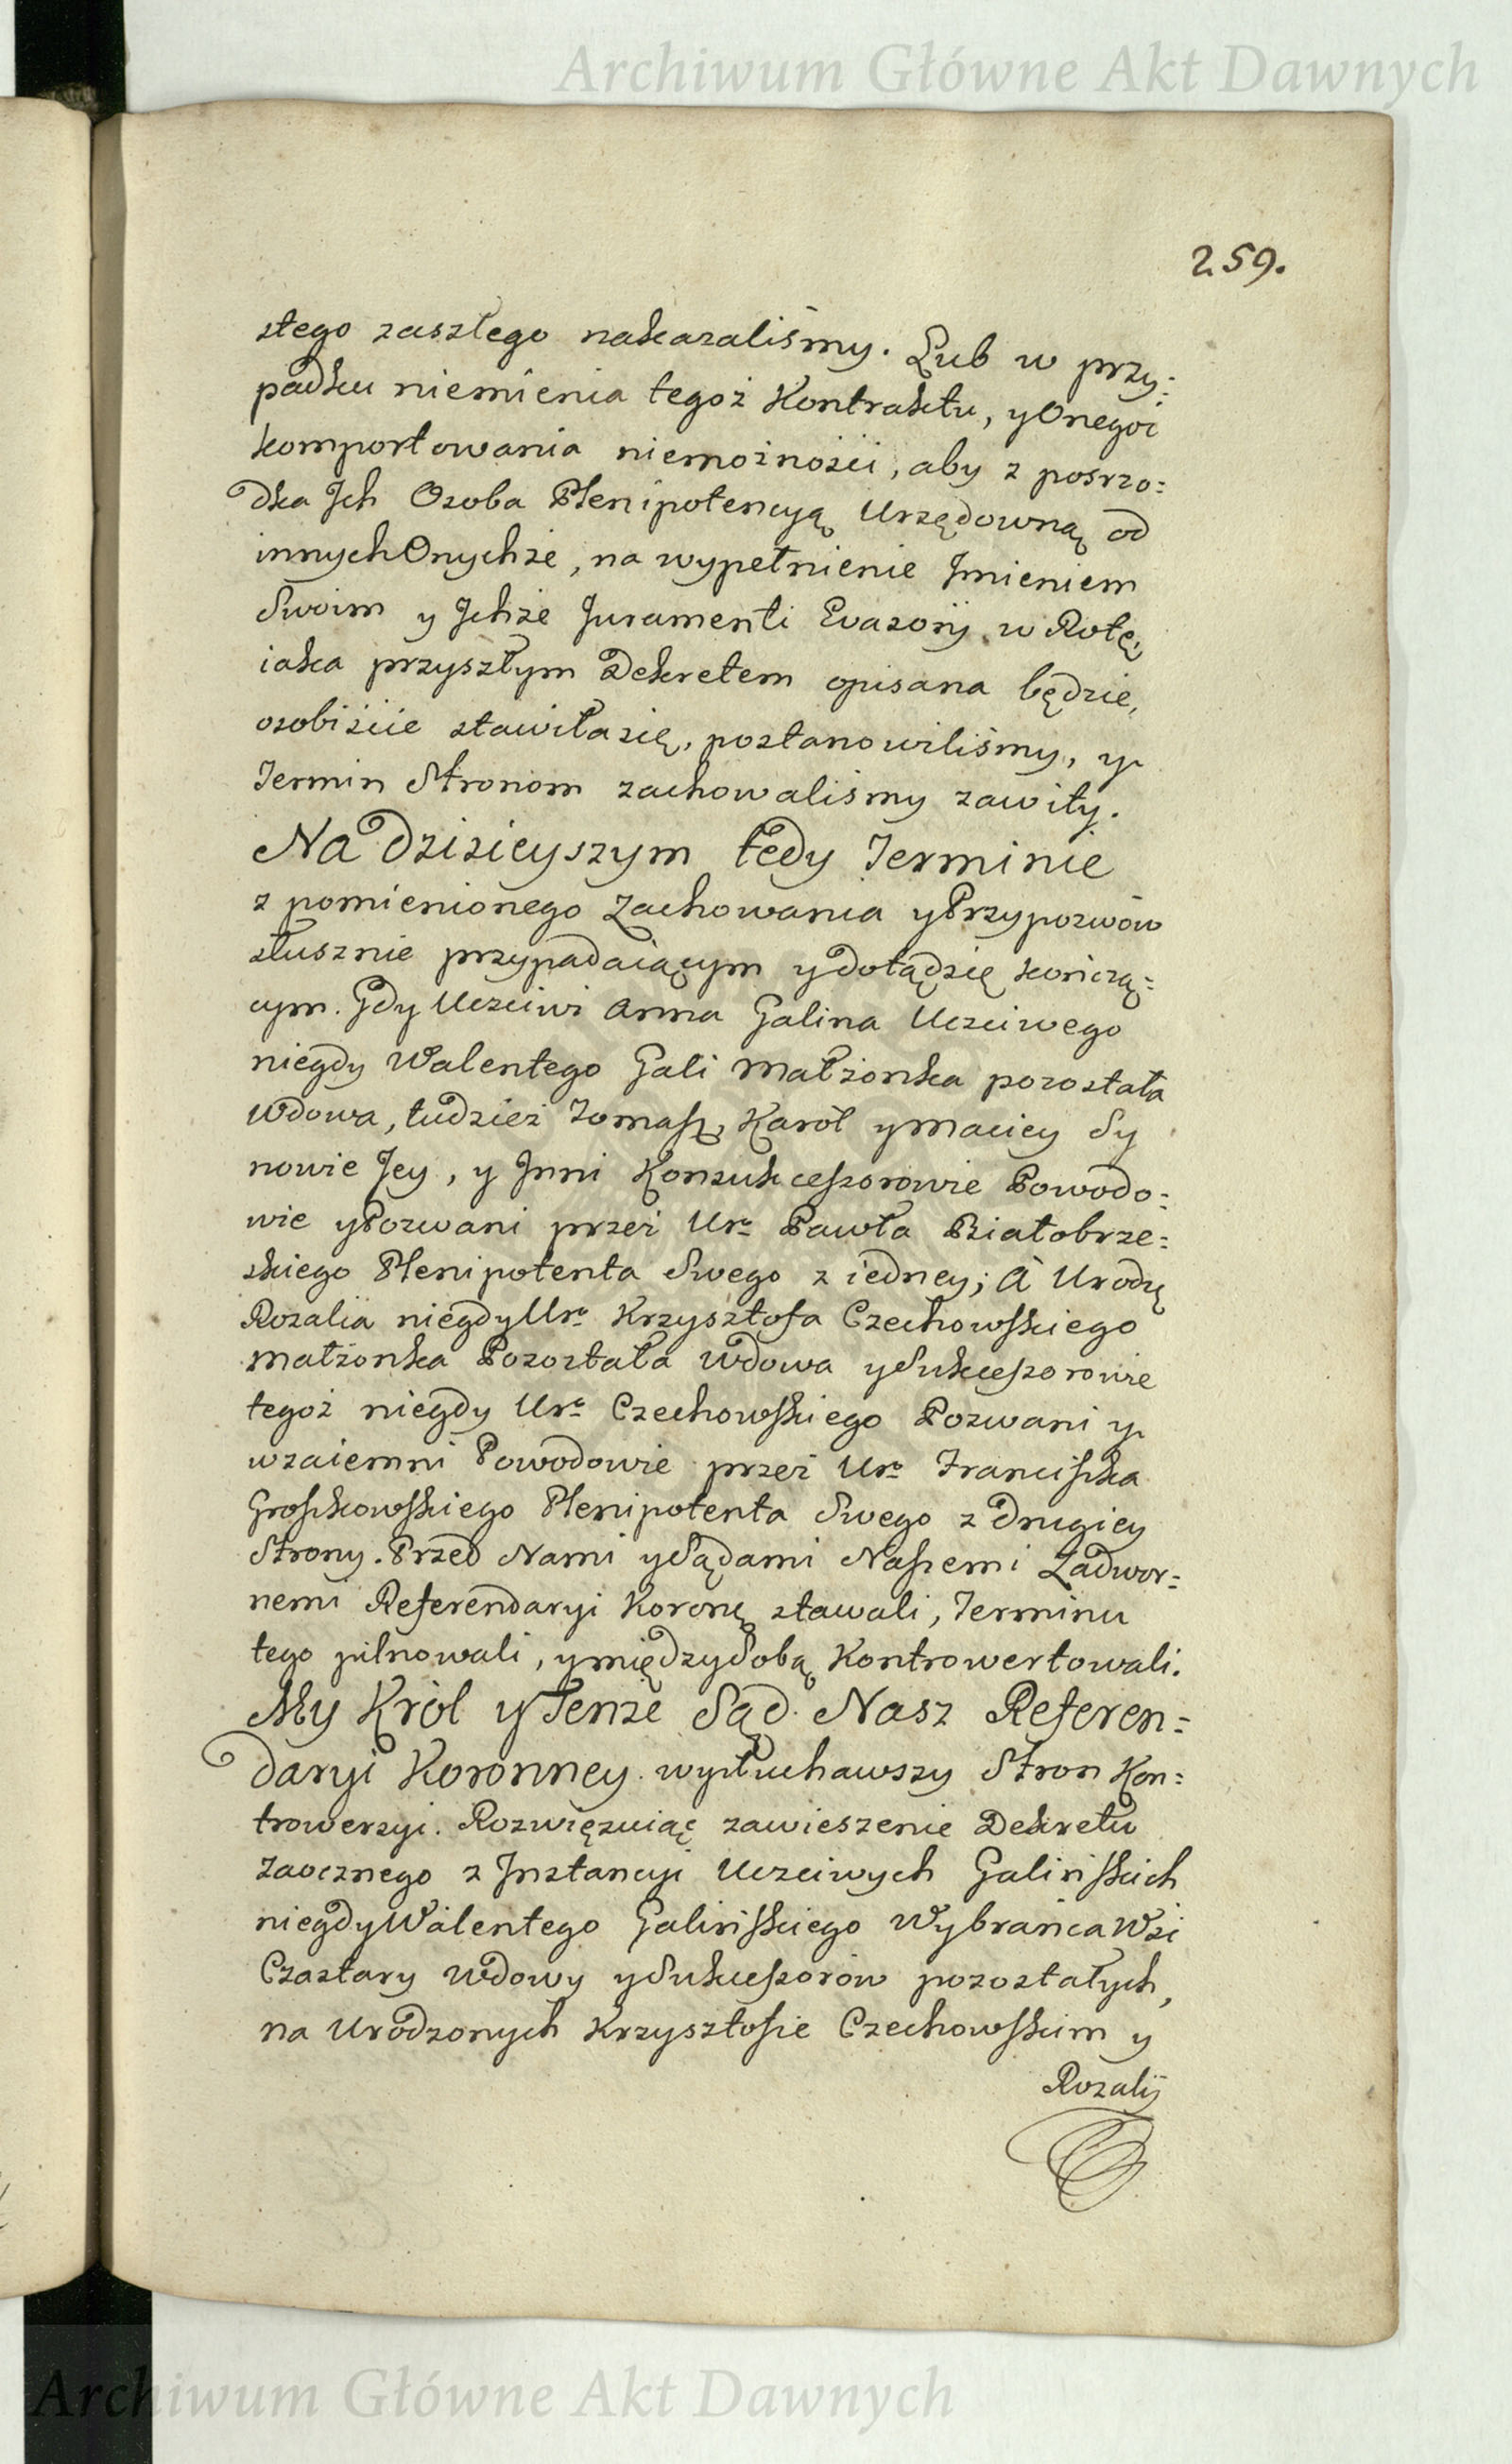 Archiwum Główne Akt Dawnych
259.
stego zaszłego nakazaliśmy. Lub w przy:
padku niemienia tegoż Kontraktu, y Onegoż
komportowania niemożności, aby z posrzo:
dka Ich Osoba Plenipotencyą Urzędowną od
innych Onychże, na wypełnienie Imieniem
Swoim y Ichże Juramenti Evasorij w Rotę,
iaka przyszłym Dekretem opisana będzie,
osobiście stawiła się, postanowiliśmy, y
Termin Stronom zachowaliśmy zawity.
Na dzisieyszym tedy Terminie
z pomienionego Zachowania y Przypozwów
słusznie przypadaiącym y dotąd się kończą:
cym. Gdy Uczciwi Anna Galina Uczciwego
niegdy Walentego Gali Małżonka pozostała
Wdowa, tudzież Tomasz, Karól y Maciey Sy
nowie Jey, y Inni Konsukcessorowie Powodo:
wie y Pozwani przez Ur: Pawła Białobrze:
skiego Plenipotenta Swego z iedney; A Urodz
Rozalia niegdy Ur: Krzysztofa Czechowskiego
Małżonka Pozostała Wdowa y Sukcessorowie
tegoż niegdy Ur: Czechowskiego Pozwani y
wzaiemni Powodowie przez Ur: Franciszka
Groszkowskiego Plenipotenta Swego z drugiey
Strony. Przed Nami y Sądami Naszemi Zadwor:
nemi Referendaryi Koronę stawali, Terminu
tego pilnowali, y między Sobą Kontrowertowali.
My Król y Tenże Sąd Nasz Referen:
daryi Koronney wysłuchawszy Stron Kon:
trowersyi. Rozwięzuiąc zawieszenie Dekretu
Zaocznego z Instancyi Uczciwych Galińskich
niegdy Walentego Galińskiego Wybrańca Wsi
Czastary Wdowy y Sukcessorów pozostałych,
na Urodzonych Krzysztofie Czechowskim y
Rozalij
Archiwum Główne Akt Dawnych